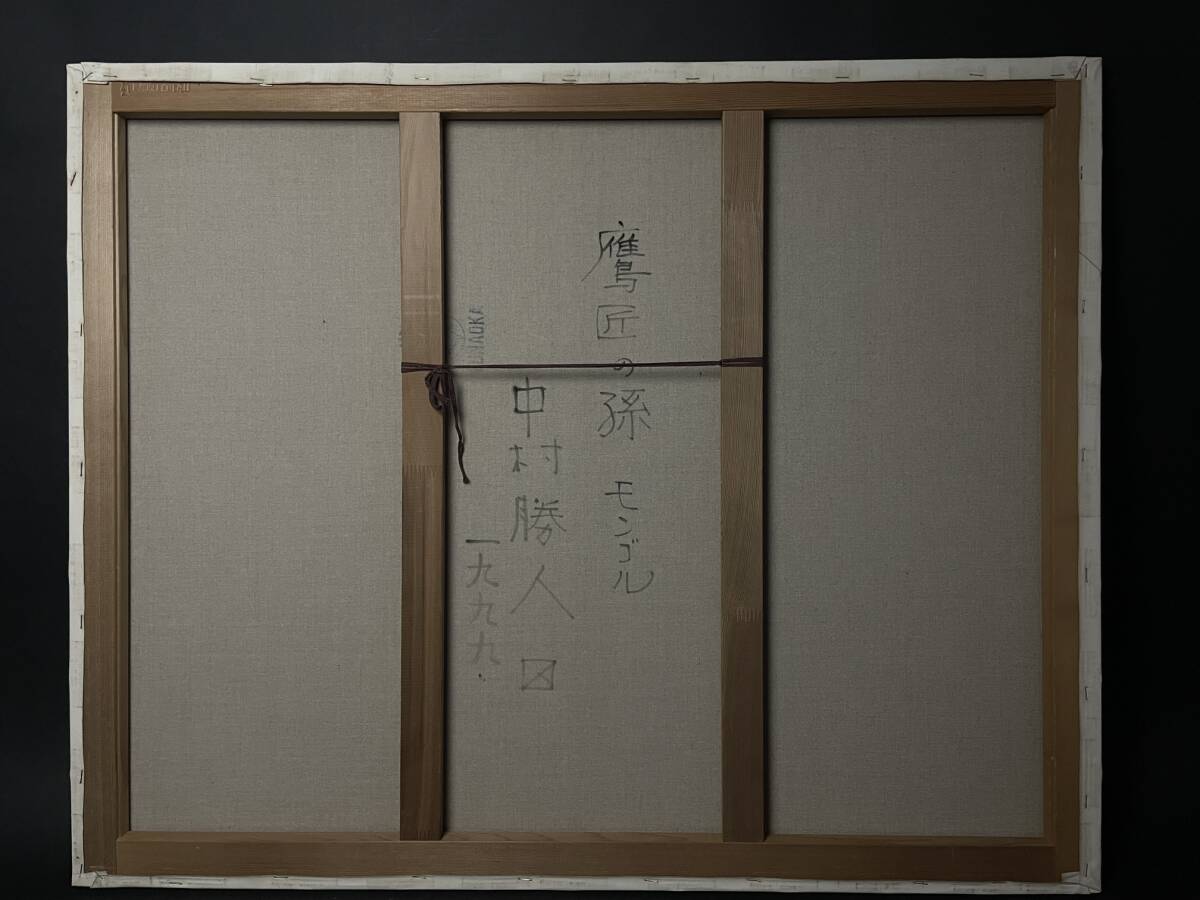 鷹匠の孫 モンゴル
中村勝人
一九九九.